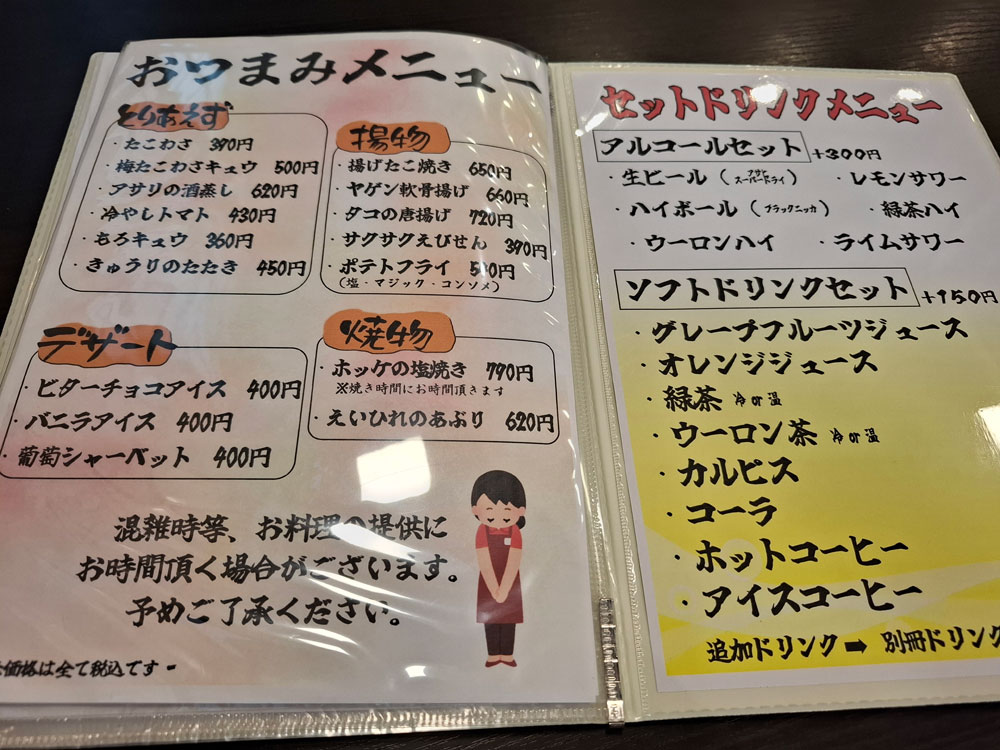 おつまみメニュー
とりあえず
・たこわさ 390円
・梅たこわさキュウ 500円
・アサリの酒蒸し 620円
・冷やしトマト 430円
・もろキュウ 360円
・きゅうりのたたき 450円
揚物
・揚げたこ焼き 650円
・ヤゲン軟骨揚げ 660円
・タコの唐揚げ 720円
・サクサクえびせん 390円
・ポテトフライ
(塩・マジック・コンソメ)
デザート
・ビターチョコアイス 400円
・バニラアイス 400円
・葡萄シャーベット 400円
焼物
・ホッケの塩焼き 790円
※焼き時間にお時間頂きます
・えいひれのあぶり 620円
混雑時等、お料理の提供に
お時間頂く場合がございます。
予めご了承ください。
価格は全て税込です
セットドリンクメニュー
アルコールセット +300円
・生ビール(アサヒスーパードライ) ・レモンサワー
・ハイボール(ブラックニッカ) ・緑茶ハイ
・ウーロンハイ ・ライムサワー
ソフトドリンクセット +150円
・グレープフルーツジュース
・オレンジジュース
・緑茶 冷or温
・ウーロン茶 冷or温
・カルピス
・コーラ
・ホットコーヒー
・アイスコーヒー
追加ドリンク➡別冊ドリンク